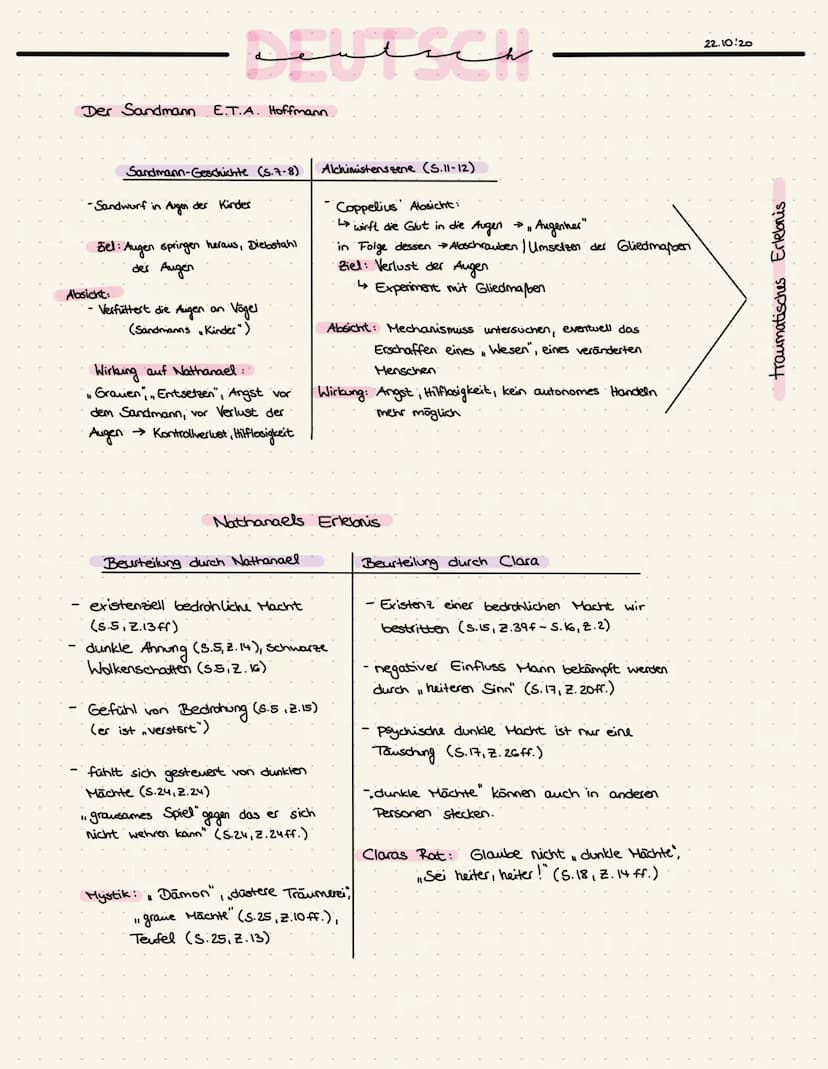 DEUTSCH
deutsch
22.10.'20
Der Sandmann E.T.A. Hoffmann
Sandmann-Geschichte (S.7-8)
- Sandwurf in Augen der Kinder
Ziel: Augen springen heraus, Diebstahl
der Augen
Absicht:
- Verfüttert die Augen an Vögel
(Sandmanns „Kinder")
Wirkung auf Nathanael:
„Grauen", „Entsetzen", Angst vor
dem Sandmann, vor Verlust der
Augen → Kontrollverlust, Hilflosigkeit
Alchimistenszene (S.11-12)
- Coppelius' Absicht:
↳ wirft die Glut in die Augen → „Augenher"
in Folge dessen → Abschrauben | Umsetzen der Gliedmaßen
Ziel: Verlust der Augen
↳ Experiment mit Gliedmaßen
Absicht: Mechanismuss untersuchen, eventuell das
Erschaffen eines „Wesen", eines veränderten
Menschen
Wirkung: Angst, Hilflosigkeit, kein autonomes Handeln
mehr möglich
traumatisches Erlebnis
Nathanaels Erlebnis
Beurteilung durch Nathanael
- existenziell bedrohliche Macht
(S.5, Z.13ff)
- dunkle Ahnung (S.5, Z.14), schwarze
Wolkenschatten (S.5, Z.16)
- Gefühl von Bedrohung (S.5, Z.15)
(er ist „verstört")
- fühlt sich gesteuert von dunklen
Mächte (S.24, Z.24)
„grausames Spiel" gegen das er sich
nicht wehren kann" (S.24, Z.24ff.)
Mystik: „Dämon", „düstere Träumerei",
„graue Mächte" (S.25, Z.10ff.),
Teufel (S.25, Z.13)
Beurteilung durch Clara
- Existenz einer bedrohlichen Macht wir
bestritten (S.15, Z.39f - S.16, Z.2)
- negativer Einfluss Mann bekämpft werden
durch „heiteren Sinn" (S.17, Z.20ff.)
- Psychische dunkle Macht ist nur eine
Täuschung (S.17, Z.26ff.)
- „dunkle Mächte" können auch in anderen
Personen stecken.
Claras Rat: Glaube nicht „dunkle Mächte",
„Sei heiter, heiter!" (S.18, Z.14 ff.)